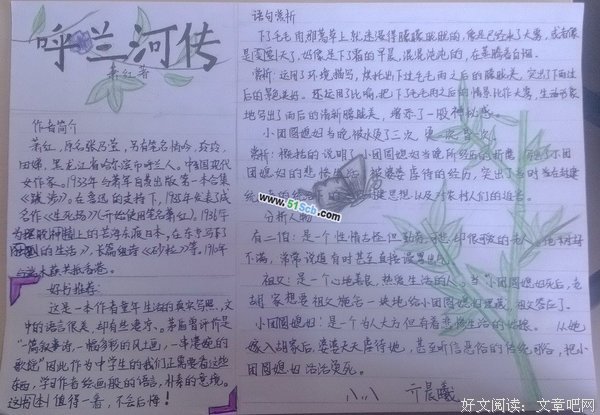 呼兰河传
萧红著
作者简介
萧红,原名张乃莹,另有笔名悄吟,玲玲,
田娣,黑龙江省哈尔滨市呼兰人。中国现代
女作家。1933年与萧军自费出版第一本合集
《跋涉》。在鲁迅的支持下,1935年发表了成
名作《生死场》(开始使用笔名萧红)。1936年
为摆脱精神上的苦恼东渡日本。在东京写下了
的生活》,长篇组诗《砂粒》等。1940年
好书推荐:
这是一本作者童年生活的真实写照,文
中的语言很美,却有些凄凉。茅盾曾评价是
“一篇叙事诗,一幅多彩的风土画,一串凄婉的
歌谣”因此作为中学生的我们正需要看这些
东西,学习作者绘画般的语言,朴素的意境。
值得一看,不会后悔!
语句赏析
下了毛毛雨,那蒿草上就迷漫得朦朦胧胧的,像是已经来了大雾,或者像
是要变天了,好像是下了霜的早晨,混混沌沌的,在蒸腾着白烟。
赏析:运用了环境描写,烘托出下过毛毛雨之后的朦胧美,突出了下雨过
后的景色美好。还运用了比喻,把下了毛毛雨之后的情景比作大雾,生动形象
地写出了雨后的清新朦胧美,增添了一股神秘感。
小团圆媳妇当晚被热烫了三次,烫一次,昏一次。
赏析:概括的说明了小团圆媳妇当晚所经历的折磨,小团
圆媳妇的悲惨生活,被婆婆虐待的经历,突出了当时
思想以及对农村人们的迫害。
www.51Scb.com
分析人物
有二伯:是一个性情古怪但
不满,常常说反有时甚至直接
祖父:是一个心地善良,热爱生活的人。当“小团圆媳妇死后,老
胡家想要祖父施活一块地给小团圆媳妇埋葬,祖父答应了。
小团圆媳妇:是一个为人大方但有着悲惨生活的姑娘。从她
嫁入胡家后,婆婆天天虐待她,甚至听信愚俗的传统习俗,把小
团圆媳妇活活烫死。
八、八
晨曦
好文阅读:文章吧网